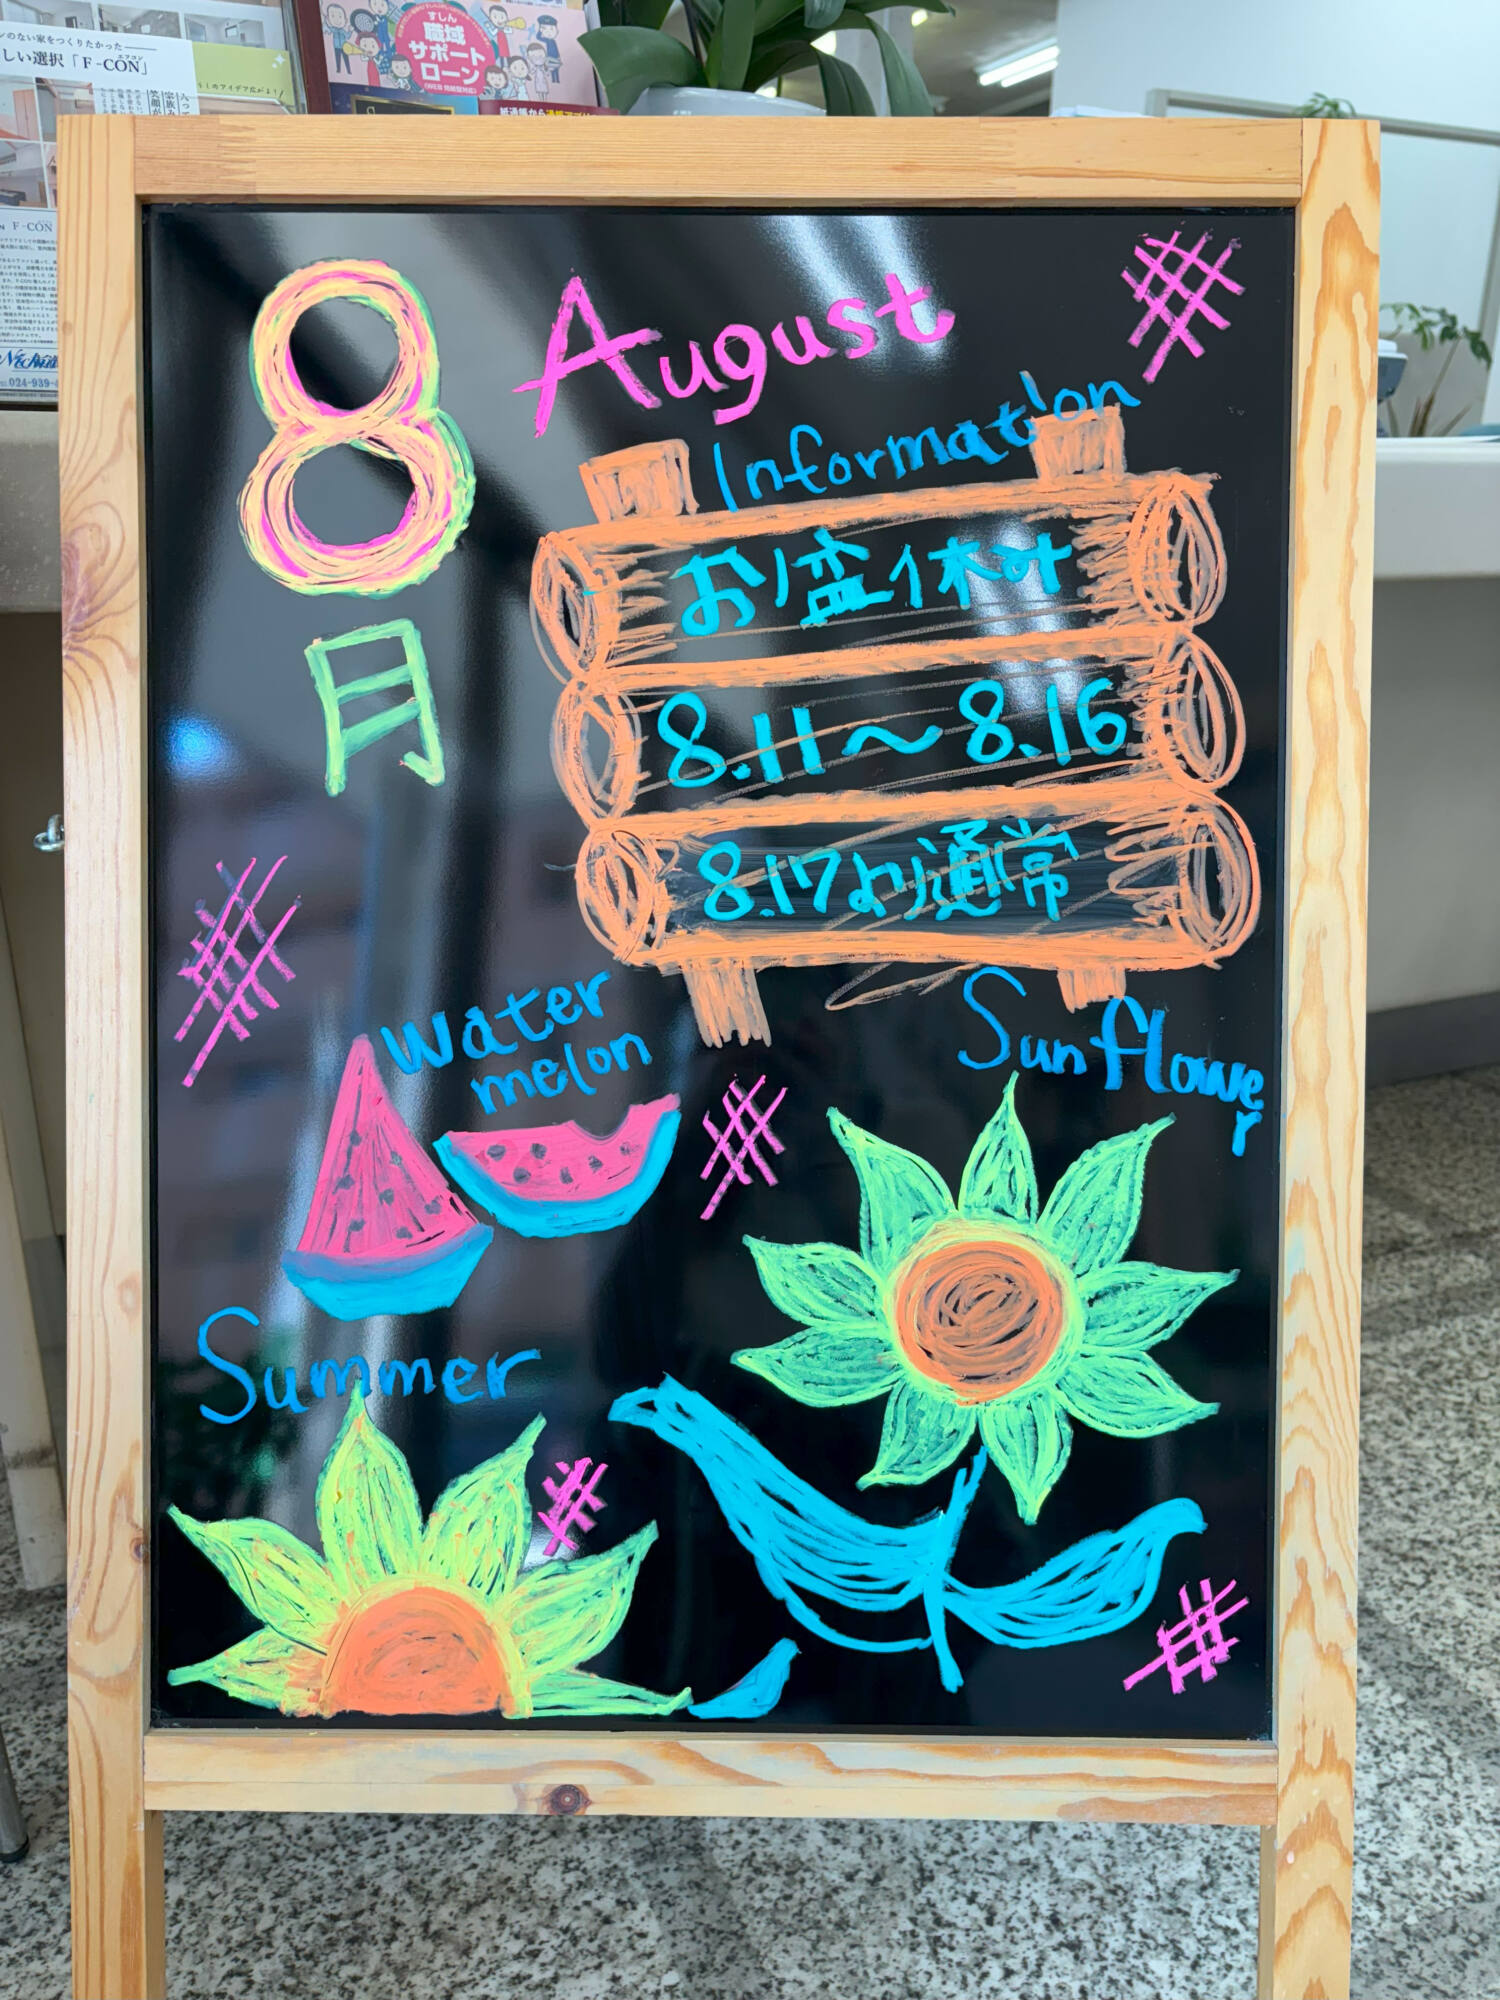 ンのない家をつくりたかった
しい選択「F-CON」
エフコン
すしん
職域
サポート
ローン
(WEB完結型対応)
F-CON
024-939-4
8
月
August
Information
お盆休み
8.11〜8.16
8.17より通常
Water
melon
Sunflowe
r
Summer